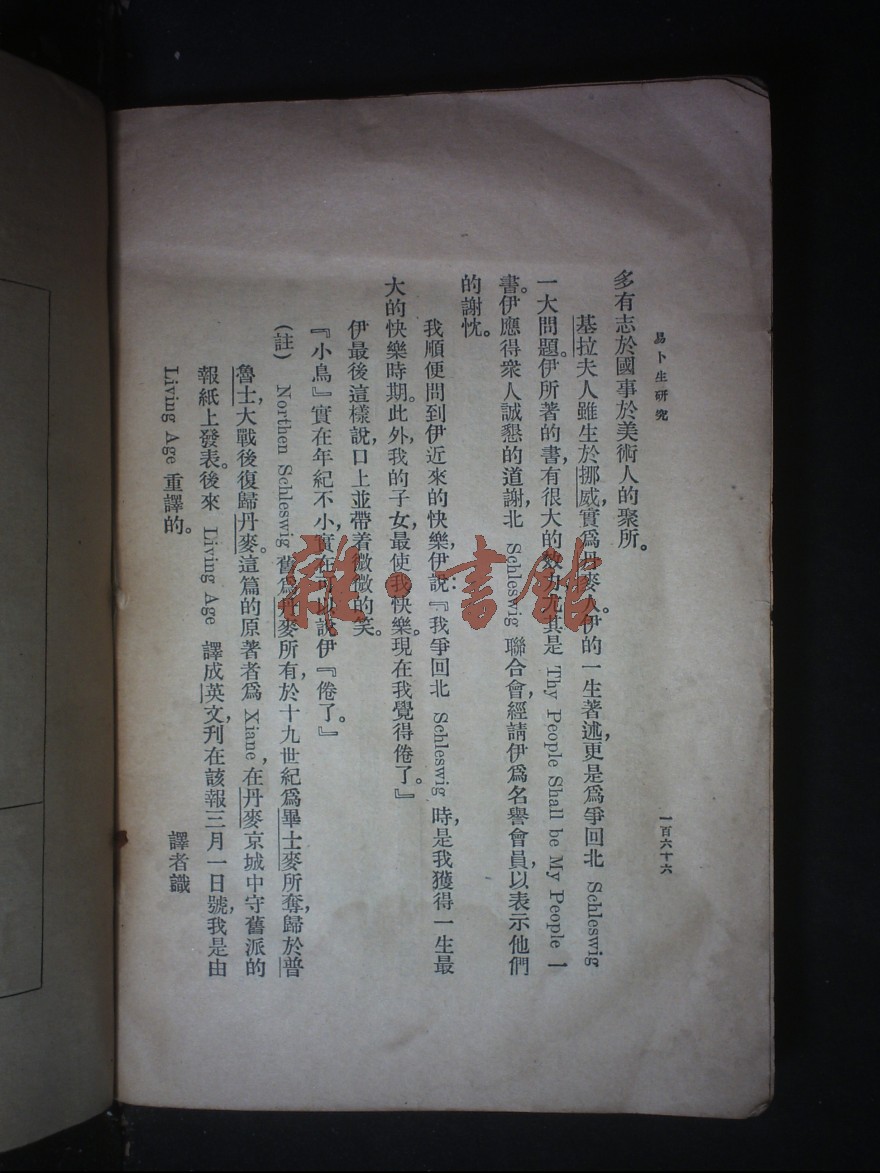 易卜生研究
一百六十六
多有志於國事於美術人的聚所。
基拉夫人雖生於挪威，實爲丹麥人。伊的一生著述，更是爲爭回北 Schleswig
一大問題。伊所著的書，有很大的效力，尤其是 Thy People Shall be My People 一
書。伊應得衆人誠懇的道謝，北 Schleswig 聯合會，經請伊爲名譽會員，以表示他們
的謝忱。
我順便問到伊近來的快樂，伊說：『我爭回北 Schleswig 時，是我獲得一生最
大的快樂時期。此外，我的子女，最使我快樂。現在我覺得倦了。』
伊最後這樣說，口上並帶着微微的笑。
『小鳥』實在年紀不小，實在可以說伊『倦了。』
(註) Northen Schleswig 舊爲丹麥所有，於十九世紀爲畢士麥所奪，歸於普
魯士，大戰後復歸丹麥。這篇的原著者爲 Xiane，在丹麥京城中守舊派的
報紙上發表。後來 Living Age 譯成英文，刋在該報三月一日號，我是由
Living Age 重譯的。
譯者識
雜·書館